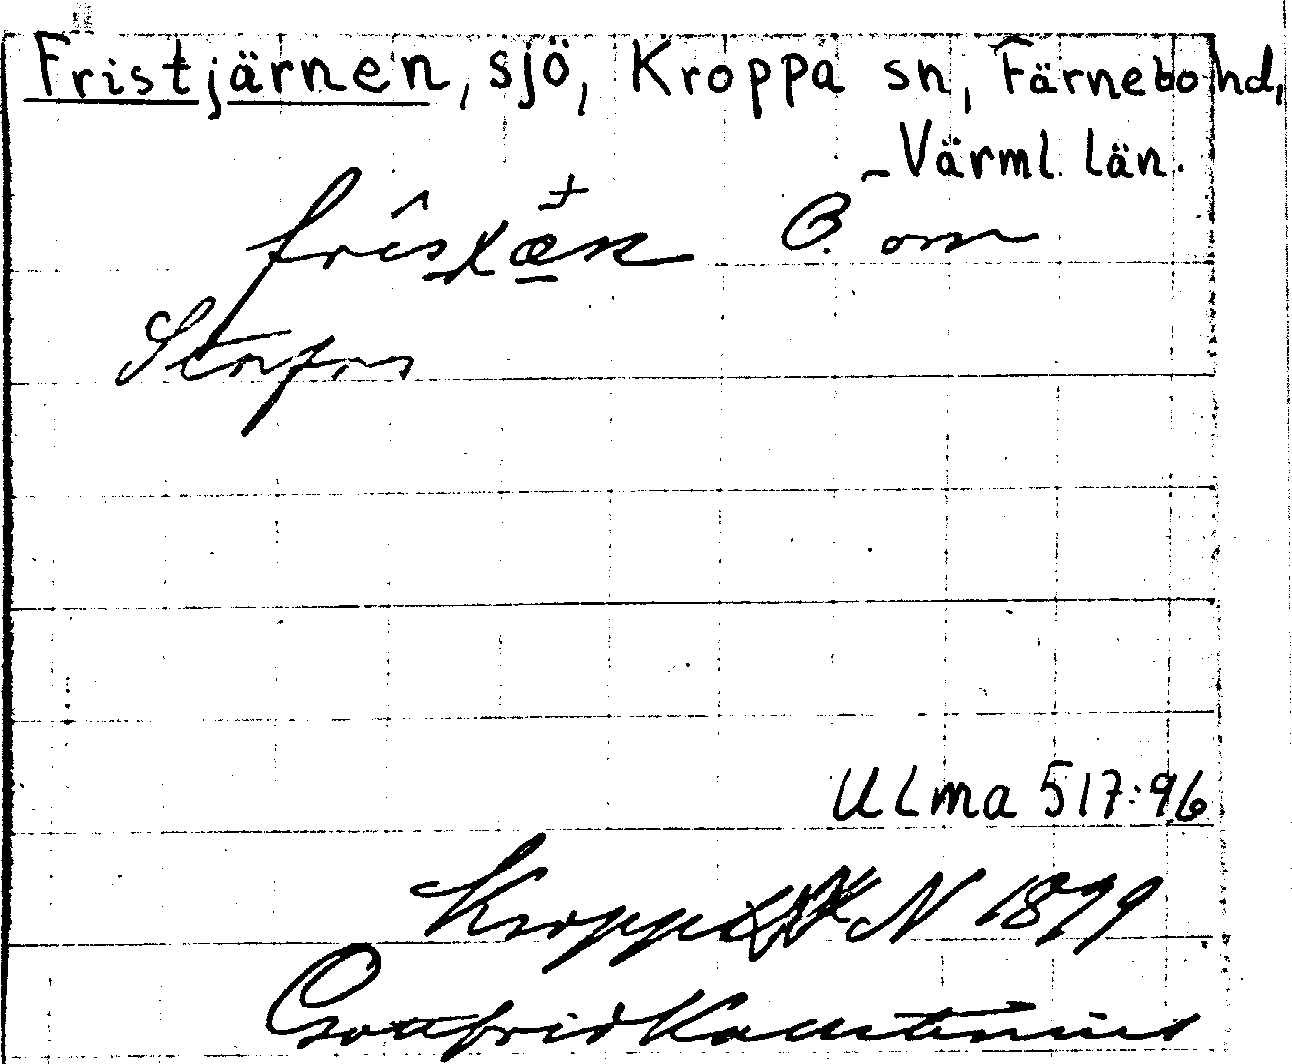 Fristjärnen, sjö, Kroppa sn, Färnebo hd,
Värml. län.
Ö. om
Storfors
ULma 517:96
Kroppa N 1899
Gottfrid Kallstenius